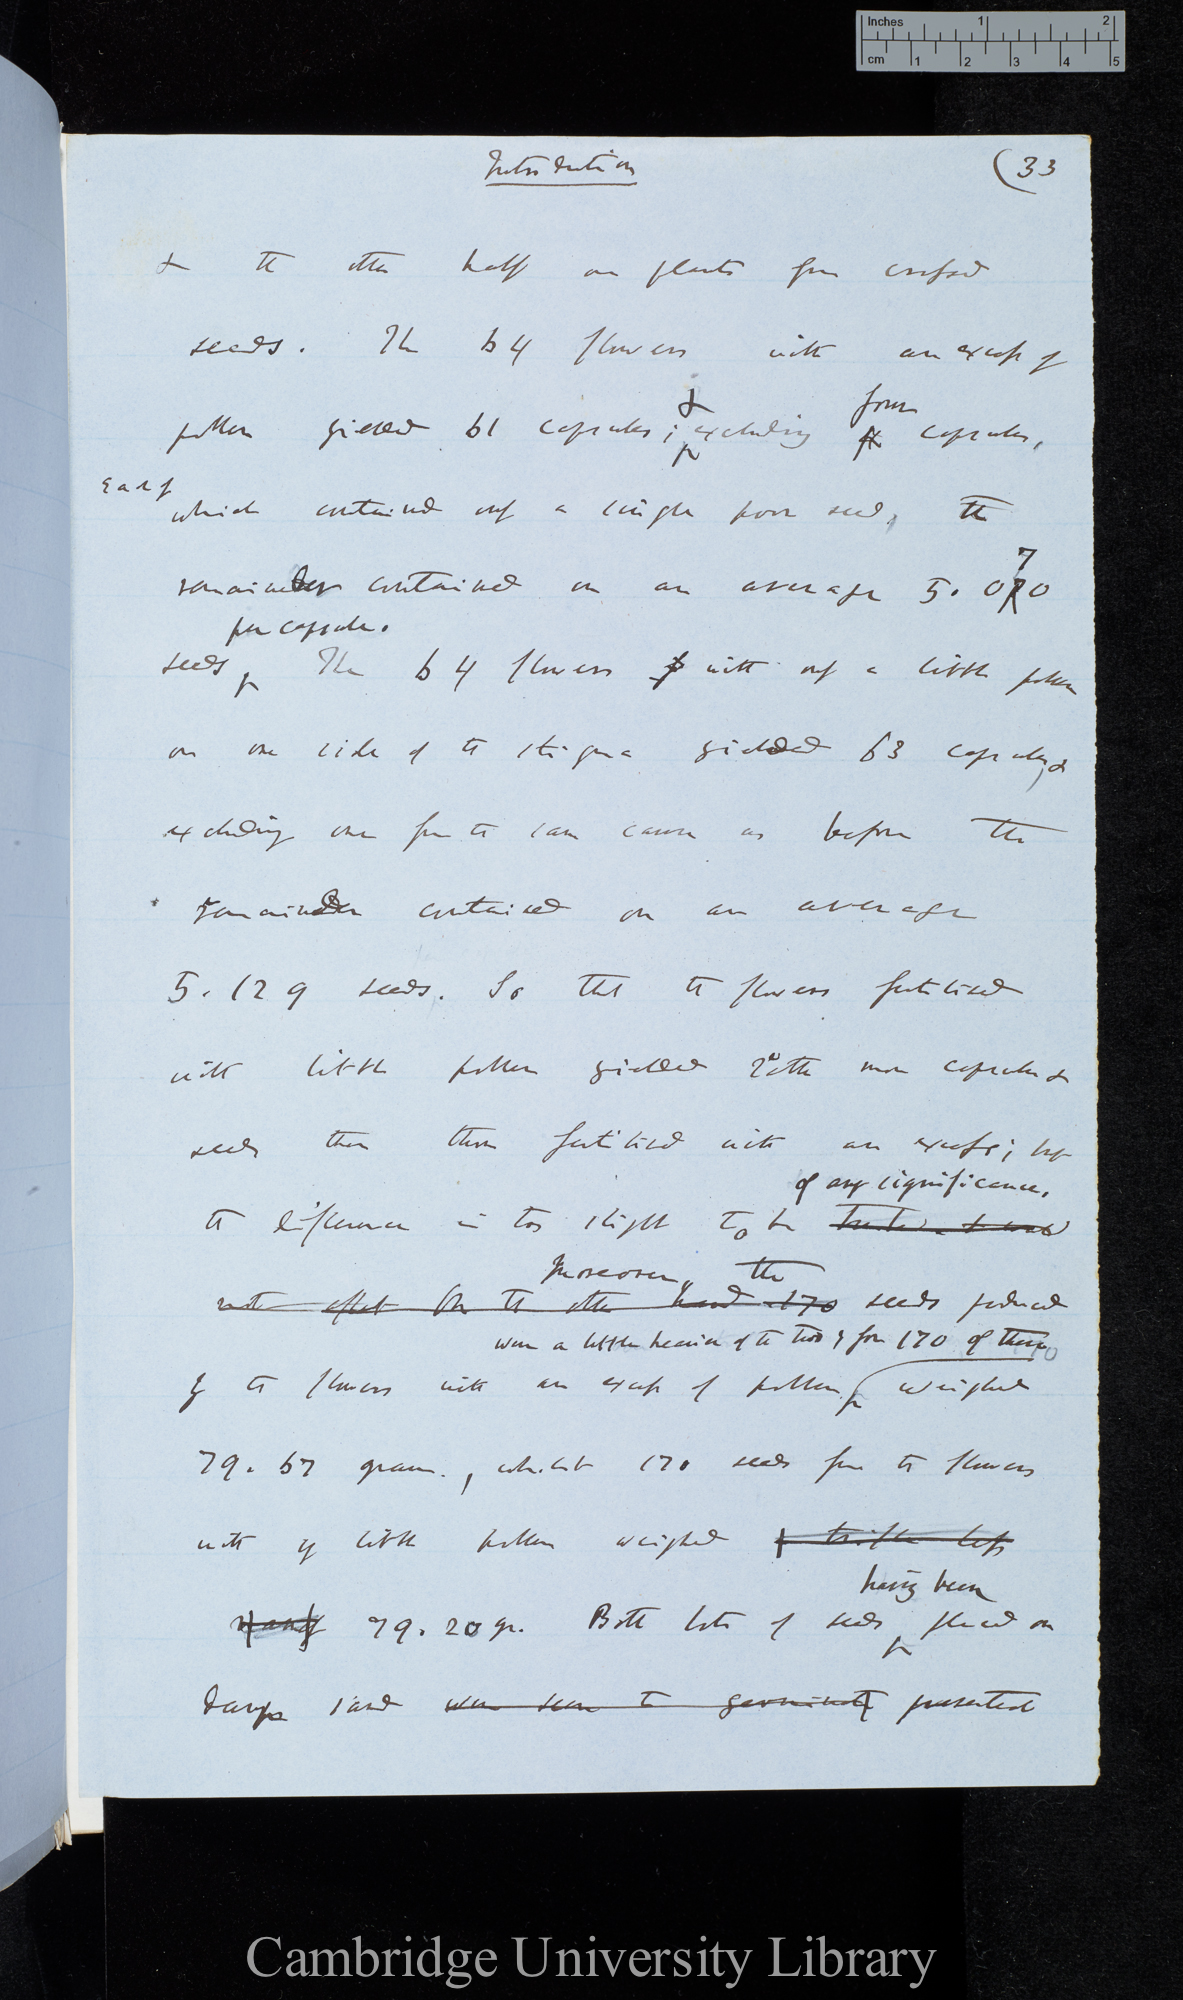 Introduction
(33
& the other half on plants from crossed
seeds. The 64 flowers with an excess of
& four
pollen yielded 61 capsules; excluding capsules,
each of
which contained only a single poor seed, the
7
remainder contained on an average 5.070
per capsule.
seeds. The 64 flowers with only a little pollen
on one side of the stigma yielded 63 capsules, &
excluding one from the same cause as before the
remainder contained on an average
5.129 seeds. So that the flowers fertilised
with little pollen yielded rather more capsules &
seeds than those fertilised with an excess; but
of any significance.
the difference is too slight to be
Moreover, the
not On the other hand 170 seeds produced
were a little heavier of the two; for 170 of them
by the flowers with an excess of pollen weighed
79.67 grains, whilst 170 seeds from the flowers
with little pollen weighed a trifle less
having been
79.20 gr. Both lots of seeds placed on
damp sand were seen to germinate presented
Inches 1 2
cm 1 2 3 4 5
Cambridge University Library